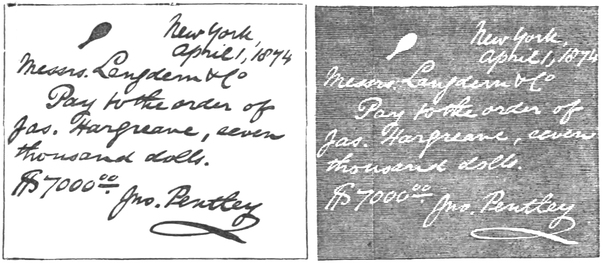 New York,
April 1, 1874
Messrs. Langdern & Co
Pay to the order of
Jas. Hargreave, seven
thousand dolls.
$7000.00
Jno. Pentley
New York,
April 1, 1874
Messrs. Langdern & Co
Pay to the order of
Jas. Hargreave, seven
thousand dolls.
$7000.00
Jno. Pentley